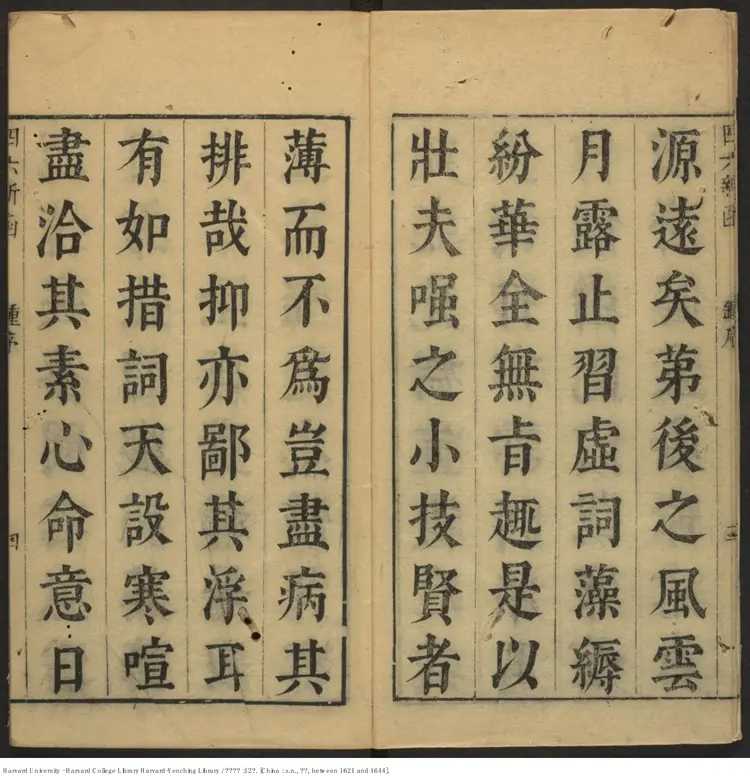 源遠矣第後之風雲
月露止習虛詞藻縟
紛華全無旨趣是以
壯夫嗤之小技賢者
薄而不爲豈盡病其
排哉抑亦鄙其浮耳
有如措詞天設寒喧
盡洽其素心命意日
四六新函
鍾序
四
四六新函
鍾序
三
Harvard University - Harvard College Library Harvard-Yenching Library / ???? :12?. [China : s.n., ??, between 1621 and 1644].